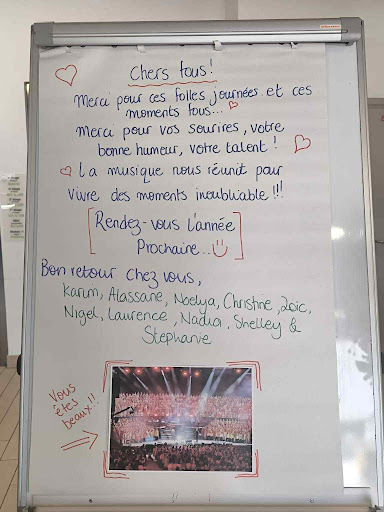 Chers tous!
Merci pour ces folles journées et ces
moments fous...
Merci pour vos sourires, votre
bonne humeur, votre talent!
La musique nous réunit pour
vivre des moments inoubliable!!!
[Rendez-vous l'année
Prochaine...]
Bon retour chez vous,
Karim, Alassane, Noelya, Christine, Loïc,
Nigel, Laurence, Nadia, Shelley &
Stephanie
Vous
êtes
beaux!!